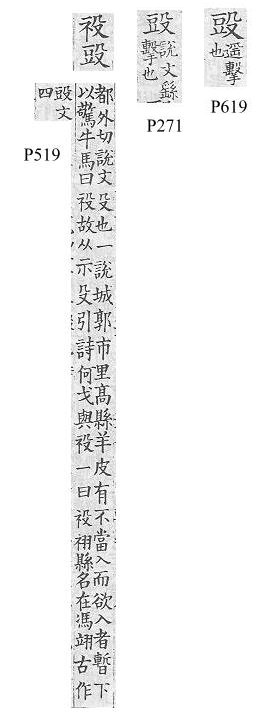 毭
遥擊
也
P619
毭
說文繇
擊也一
P271
祋毭
都外切說文殳也一說城郭市里髙縣羊皮有不當入而欲入者暫下
以驚牛馬曰祋故从示殳引詩何戈與祋一曰祋祤縣名在馮翊古作
毭文
四
P519